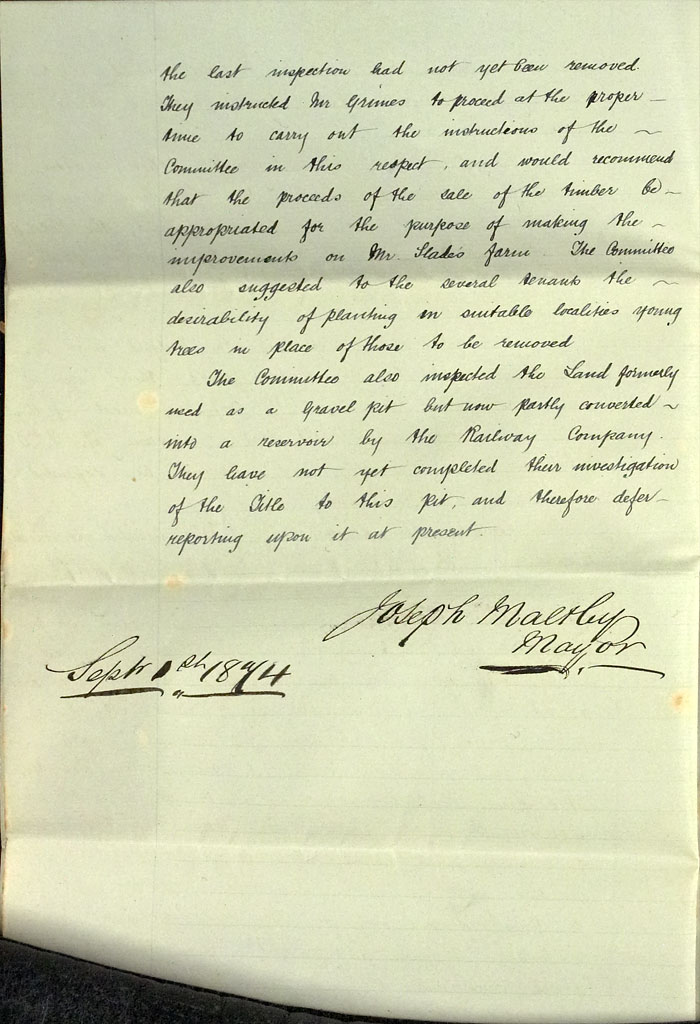 the last inspection had not yet been removed.
They instructed Mr Grimes to proceed at the proper –
time to carry out the instructions of the ~
Committee in this respect, and would recommend
that the proceeds of the sale of the timber be ~
appropriated for the purpose of making the ~
improvements on Mr. Slades farm. The Committee
also suggested to the several tenants the ~
desirability of planting in suitable localities young
trees in place of those to be removed
The Committee also inspected the Land formerly
used as a Gravel pit but now partly converted ~
into a reservoir by the Railway Company.
They have not yet completed their investigation
of the Title to this pit, and therefore defer –
reporting upon it at present.
Joseph Maltby
Mayor
Septr 1874